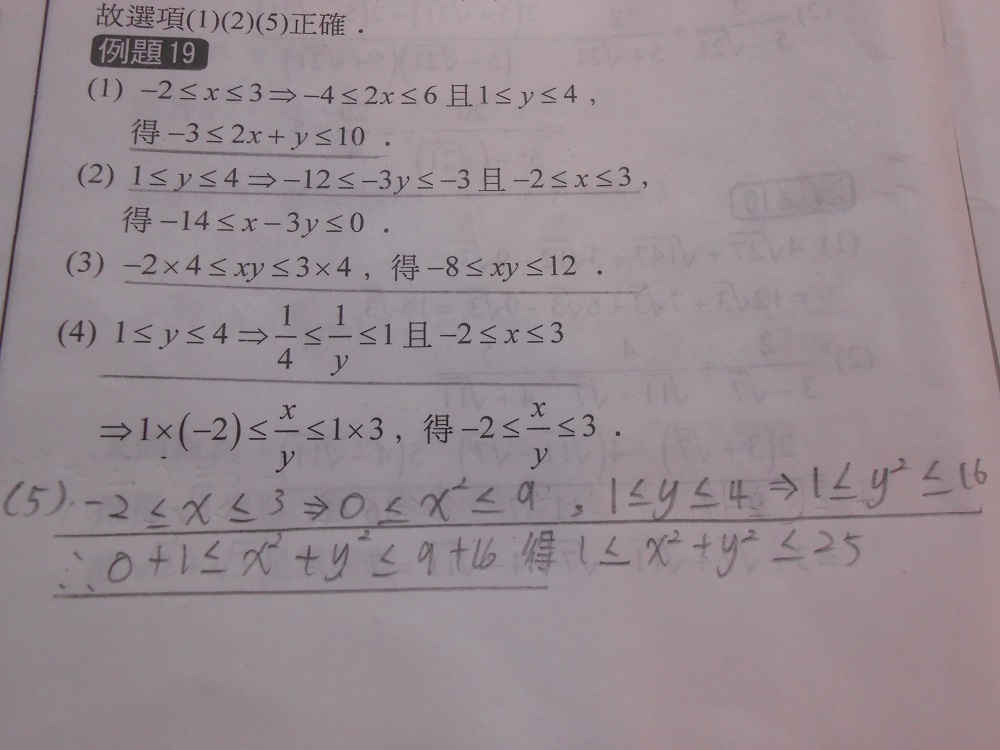 故選項(1)(2)(5)正確．
例題19
(1) −2 ≤ x ≤ 3 ⇒ −4 ≤ 2x ≤ 6 且 1 ≤ y ≤ 4，
得 −3 ≤ 2x + y ≤ 10 ．
(2) 1 ≤ y ≤ 4 ⇒ −12 ≤ −3y ≤ −3 且 −2 ≤ x ≤ 3，
得 −14 ≤ x − 3y ≤ 0 ．
(3) −2×4 ≤ xy ≤ 3×4，得 −8 ≤ xy ≤ 12 ．
(4) 1 ≤ y ≤ 4 ⇒ 1/4 ≤ 1/y ≤ 1 且 −2 ≤ x ≤ 3
⇒ 1×(−2) ≤ x/y ≤ 1×3，得 −2 ≤ x/y ≤ 3 ．
(5) −2 ≤ x ≤ 3 ⇒ 0 ≤ x² ≤ 9 , 1 ≤ y ≤ 4 ⇒ 1 ≤ y² ≤ 16
∴ 0+1 ≤ x² + y² ≤ 9+16 得 1 ≤ x² + y² ≤ 25